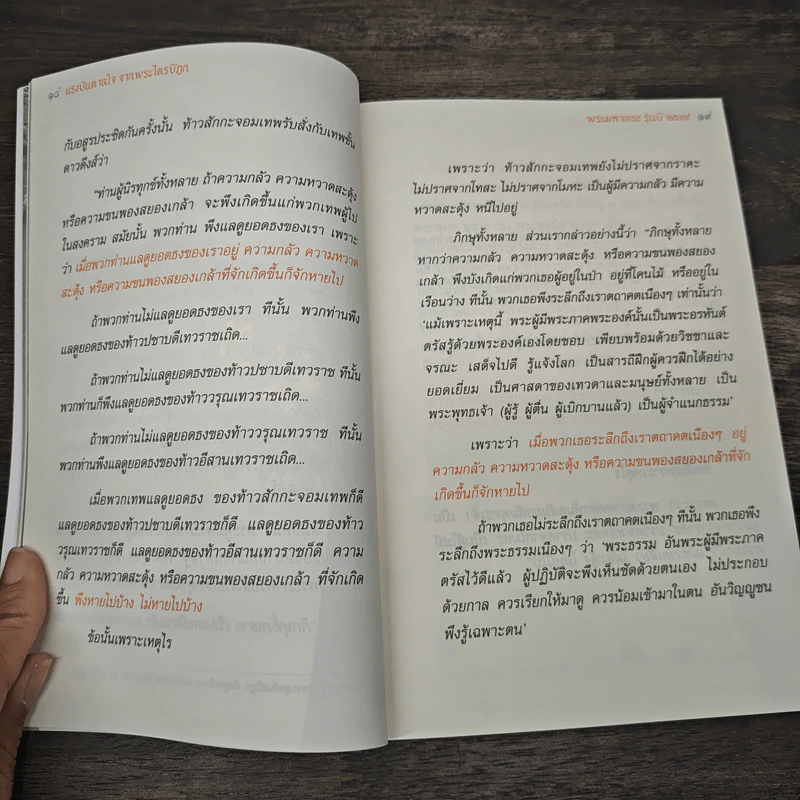 ๑๘ แรงบันดาลใจ จากพระไตรปิฎก
กับอสูรประชิดกันครั้งนั้น ท้าวสักกะจอมเทพรับสั่งกับเทพชั้น
ดาวดึงส์ว่า
“ท่านผู้นิรทุกข์ทั้งหลาย ถ้าความกลัว ความหวาดสะดุ้ง
หรือความขนพองสยองเกล้า จะพึงเกิดขึ้นแก่พวกเทพผู้ไป
ในสงคราม สมัยนั้น พวกท่าน พึงแลดูยอดธงของเรา เพราะ
ว่า เมื่อพวกท่านแลดูยอดธงของเราอยู่ ความกลัว ความหวาด
สะดุ้ง หรือความขนพองสยองเกล้าที่จักเกิดขึ้นก็จักหายไป
ถ้าพวกท่านไม่แลดูยอดธงของเรา ทีนั้น พวกท่านพึง
แลดูยอดธงของท้าวปชาบดีเทวราชเถิด...
ถ้าพวกท่านไม่แลดูยอดธงของท้าวปชาบดีเทวราช ทีนั้น
พวกท่านก็พึงแลดูยอดธงของท้าววรุณเทวราชเถิด...
ถ้าพวกท่านไม่แลดูยอดธงของท้าววรุณเทวราช ทีนั้น
พวกท่านพึงแลดูยอดธงของท้าวอีสานเทวราชเถิด...
เมื่อพวกเทพแลดูยอดธง ของท้าวสักกะจอมเทพก็ดี
แลดูยอดธงของท้าวปชาบดีเทวราชก็ดี แลดูยอดธงของท้าว
วรุณเทวราชก็ดี แลดูยอดธงของท้าวอีสานเทวราชก็ดี ความ
กลัว ความหวาดสะดุ้ง หรือความขนพองสยองเกล้า ที่จักเกิด
ขึ้น พึงหายไปบ้าง ไม่หายไปบ้าง
ข้อนั้นเพราะเหตุไร
พระมหาเถระ รุ่นปี ๒๕๓๙ ๑๙
เพราะว่า ท้าวสักกะจอมเทพยังไม่ปราศจากราคะ
ไม่ปราศจากโทสะ ไม่ปราศจากโมหะ เป็นผู้มีความกลัว มีความ
หวาดสะดุ้ง หนีไปอยู่
ภิกษุทั้งหลาย ส่วนเรากล่าวอย่างนี้ว่า “ภิกษุทั้งหลาย
หากว่าความกลัว ความหวาดสะดุ้ง หรือความขนพองสยอง
เกล้า พึงบังเกิดแก่พวกเธอผู้อยู่ในป่า อยู่ที่โคนไม้ หรืออยู่ใน
เรือนว่าง ทีนั้น พวกเธอพึงระลึกถึงเราตถาคตเนืองๆ เท่านั้นว่า
‘แม้เพราะเหตุนี้ พระผู้มีพระภาคพระองค์นั้นเป็นพระอรหันต์
ตรัสรู้ด้วยพระองค์เองโดยชอบ เพียบพร้อมด้วยวิชชาและ
จรณะ เสด็จไปดี รู้แจ้งโลก เป็นสารถีฝึกผู้ควรฝึกได้อย่าง
ยอดเยี่ยม เป็นศาสดาของเทวดาและมนุษย์ทั้งหลาย เป็น
พระพุทธเจ้า (ผู้รู้ ผู้ตื่น ผู้เบิกบานแล้ว) เป็นผู้จำแนกธรรม’
เพราะว่า เมื่อพวกเธอระลึกถึงเราตถาคตเนืองๆ อยู่
ความกลัว ความหวาดสะดุ้ง หรือความขนพองสยองเกล้าที่จัก
เกิดขึ้นก็จักหายไป
ถ้าพวกเธอไม่ระลึกถึงเราตถาคตเนืองๆ ทีนั้น พวกเธอพึง
ระลึกถึงพระธรรมเนืองๆ ว่า ‘พระธรรม อันพระผู้มีพระภาค
ตรัสไว้ดีแล้ว ผู้ปฏิบัติจะพึงเห็นชัดด้วยตนเอง ไม่ประกอบ
ด้วยกาล ควรเรียกให้มาดู ควรน้อมเข้ามาในตน อันวิญญูชน
พึงรู้เฉพาะตน’